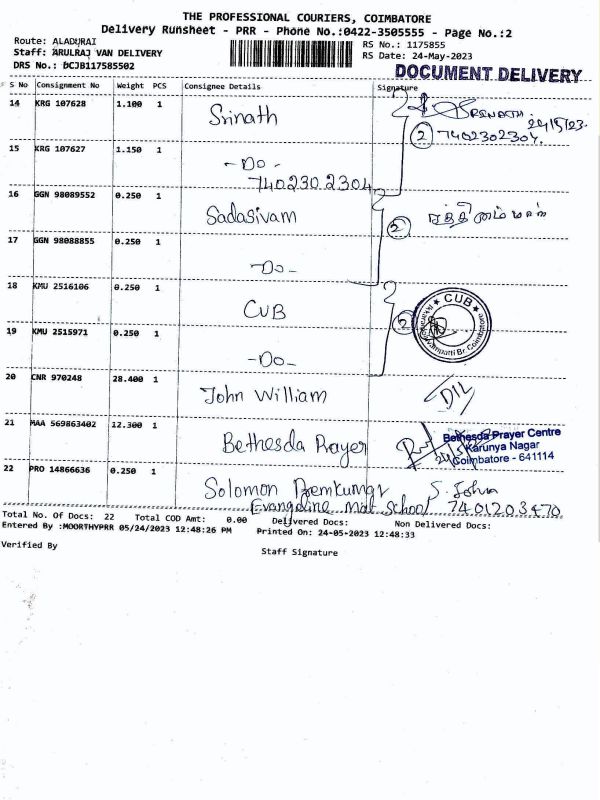 THE PROFESSIONAL COURIERS, COIMBATORE
Delivery Runsheet - PRR - Phone No.:0422-3505555 - Page No.:2
Route: ALADURAI
RS No.: 1175855
Staff: ARULRAJ VAN DELIVERY
RS Date: 24-May-2023
DRS No.: DCJB117585502
DOCUMENT DELIVERY
S No Consignment No Weight PCS Consignee Details Signature
14 KRG 107628 1.100 1 Srinath SRENATH 24/5/23.
2 7402302304.
15 KRG 107627 1.150 1 -Do-
7402302304
16 GGN 98089552 0.250 1 Sadasivam 2
17 GGN 98088855 0.250 1 -Do-
18 KMU 2516106 0.250 1 CUB 2 CUB
19 KMU 2515971 0.250 1 -Do-
20 CNR 970248 28.400 1 John William
21 MAA 569863402 12.300 1 Bethesda Prayer Bethesda Prayer Centre
Karunya Nagar
Coimbatore - 641114
22 PRO 14866636 0.250 1 Solomon Premkumar S. John
Evangeline Mat School 7401203470
Total No. Of Docs: 22 Total COD Amt: 0.00 Delivered Docs: Non Delivered Docs:
Entered By :MOORTHYPRR 05/24/2023 12:48:26 PM Printed On: 24-05-2023 12:48:33
Verified By Staff Signature